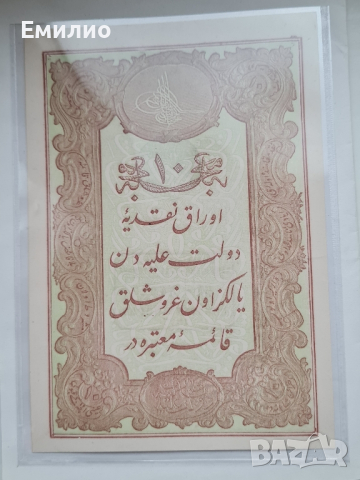 Емилио
١٠
اوراق نقدیۀ
دولت علیه دن
یالکز اون غروشلق
قائمۀ معتبره در
BAZAR